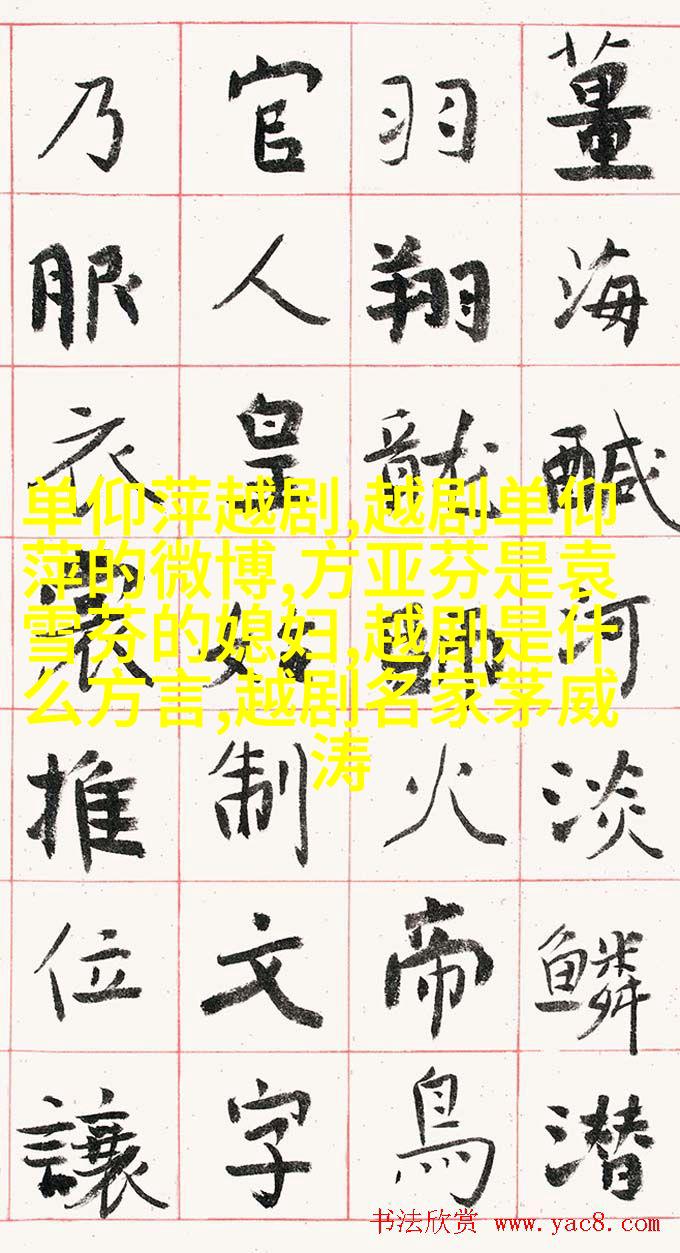 薑海醎河淡鳞潜
羽翔龍師火帝鳥
官人皇始制文字
乃服衣裳推位讓
单仰萍越剧,越剧单仰
萍的微博,方亚芬是袁
雪芬的媳妇,越剧是什
么方言,越剧名家茅威
涛
书法欣赏 www.yac8.com